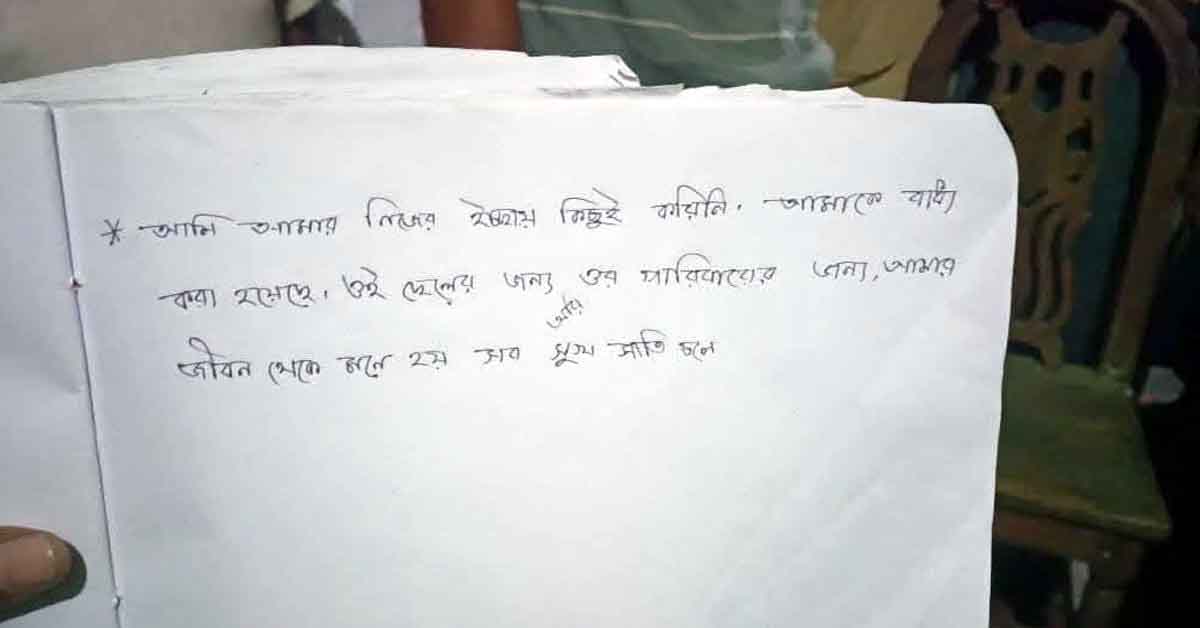 * আমি আমার নিজের ইচ্ছায় কিছুই করিনি। আমাকে বাধ্য
করা হয়েছে। ওই ছেলের জন্য ওর পারিবারের জন্য, আমার
আর
জীবন থেকে মনে হয় সব সুখ সান্তি চলে